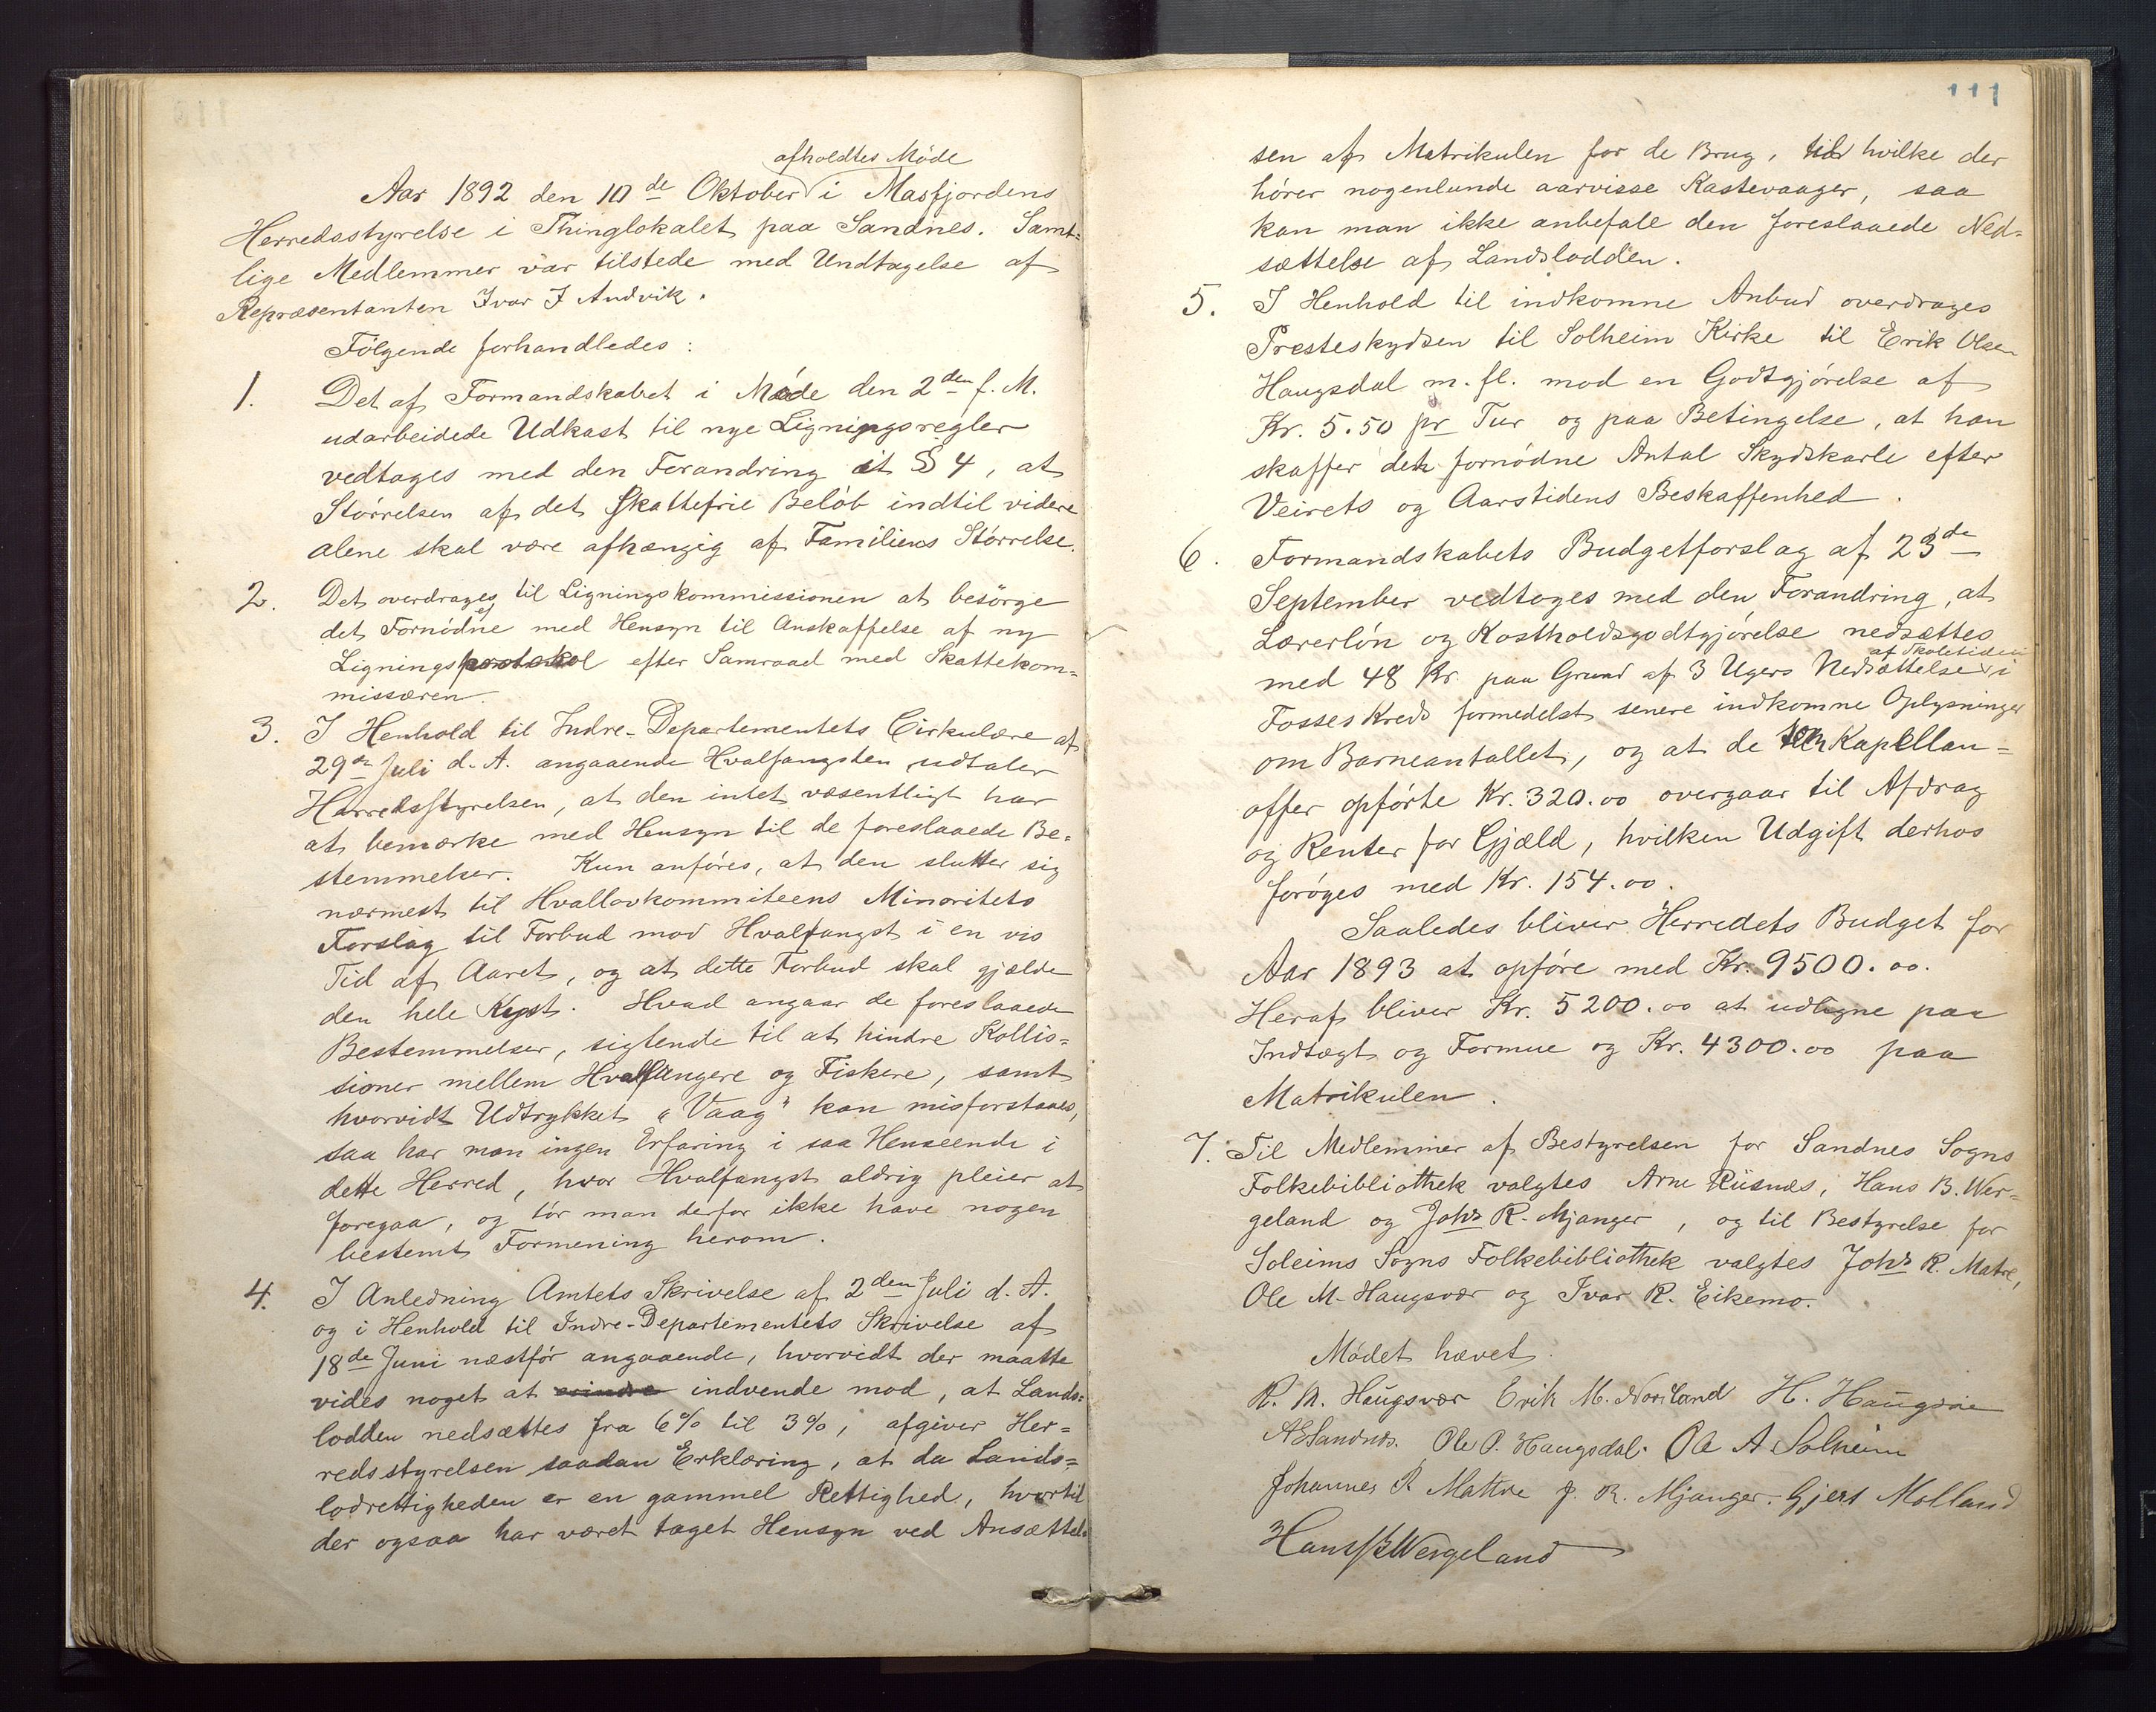 afholdtes Møde
Aar 1892 den 10de Oktober i Masfjordens
Herredsstyrelse i Thinglokalet paa Sandnes. Samt=
lige Medlemmer var tilstede med Undtagelse af
Repræsentanten Ivar I Andvik.
Følgende forhandledes:
1. Det af Formandskabet i Møde den 2den f. M.
udarbeidede Udkast til nye Ligningsregler
vedtages med den Forandring i § 4, at
Størrelsen af det skattefrie Beløb indtil videre
alene skal være afhængig af Familiens Størrelse.
2. Det overdrages til Ligningskommissionen at besørge
det Fornødne med Hensyn til Anskaffelse af ny
Ligningsprotokol efter Samraad med Skattekom=
missæren.
3. I Henhold til Indre-Departementets Cirkulære af
29de Juli d. A. angaaende Hvalfangsten udtaler
Herredsstyrelsen, at den intet væsentligt har
at bemærke med Hensyn til de foreslaaede Be=
stemmelser. Kun anføres, at den slutter sig
nærmest til Hvallovkommiteens Minoritets
Forslag til Forbud mod Hvalfangst i en vis
Tid af Aaret, og at dette Forbud skal gjælde
den hele Kyst. Hvad angaar de foreslaaede
Bestemmelser, sigtende til at hindre Kollis=
sioner mellem Hvalfangere og Fiskere, samt
hvorvidt Udtrykket "Vaag" kan misforstaaes,
saa har man ingen Erfaring i saa Henseende i
dette Herred, hvor Hvalfangst aldrig pleier at
foregaa, og tør man derfor ikke have nogen
bestemt Formening herom.
4. I Anledning Amtets Skrivelse af 2den Juli d. A.
og i Henhold til Indre-Departementets Skrivelse af
18de Juni næstfør angaaende, hvorvidt der maatte
vides noget at indvende mod, at Lands=
lodden nedsættes fra 6% til 3%, afgiver Her=
redsstyrelsen saadan Erklæring, at da Lands=
lodrettigheden er en gammel Rettighed, hvortil
der ogsaa har været taget Hensyn ved Ansættel=
111
sen af Matrikulen for de Brug, til hvilke der
hører nogenlunde aarvisse Kastevaager, saa
kan man ikke anbefale den foreslaaede Ned=
sættelse af Landslodden.
5. I Henhold til indkomne Anbud overdrages
Presteskydsen til Solheim Kirke til Erik Olsen
Haugsdal m. fl. mod en Godtgjørelse af
Kr. 5.50 pr Tur og paa Betingelse, at han
skaffer det fornødne Antal Skydskarle efter
Veirets og Aarstidens Beskaffenhed.
6. Formandskabets Budgetforslag af 23de
September vedtoges med den Forandring, at
Lærerløn og Kostholdsgodtgjørelse nedsættes
af Skoletiden
med 48 Kr. paa Grund af 3 Ugers Nedsættelse i
Fosses Kreds formedelst senere indkomne Oplysninger
om Barneantallet, og at de som Kapellan=
offer opførte Kr. 320.00 overgaar til Afdrag
og Renter for Gjæld, hvilken Udgift derhos
forøges med Kr. 154.00.
Saaledes bliver Herredets Budget for
Aar 1893 at opføre med Kr. 9500.00.
Heraf bliver Kr. 5200.00 at udligne paa
Indtægt og Formue og Kr. 4300.00 paa
Matrikulen.
7. Til Medlemmer af Bestyrelsen for Sandnes Sogns
Folkebibliothek valgtes Arne Riisnæs, Hans B. Wer=
geland og Johs R. Mjanger, og til Bestyrelse for
Soleims Sogns Folkebibliothek valgtes Johs R. Matre,
Ole M. Haugsvær og Ivar R. Eikemo.
Mødet hævet.
R. M. Haugsvær Erik M. Nordland H.
AESandnes. Ole O. Haugsdal. Ole A. Solheim
Johannes R Mattre J. R. Mjanger. Gjert Molland
Hans B Wergeland